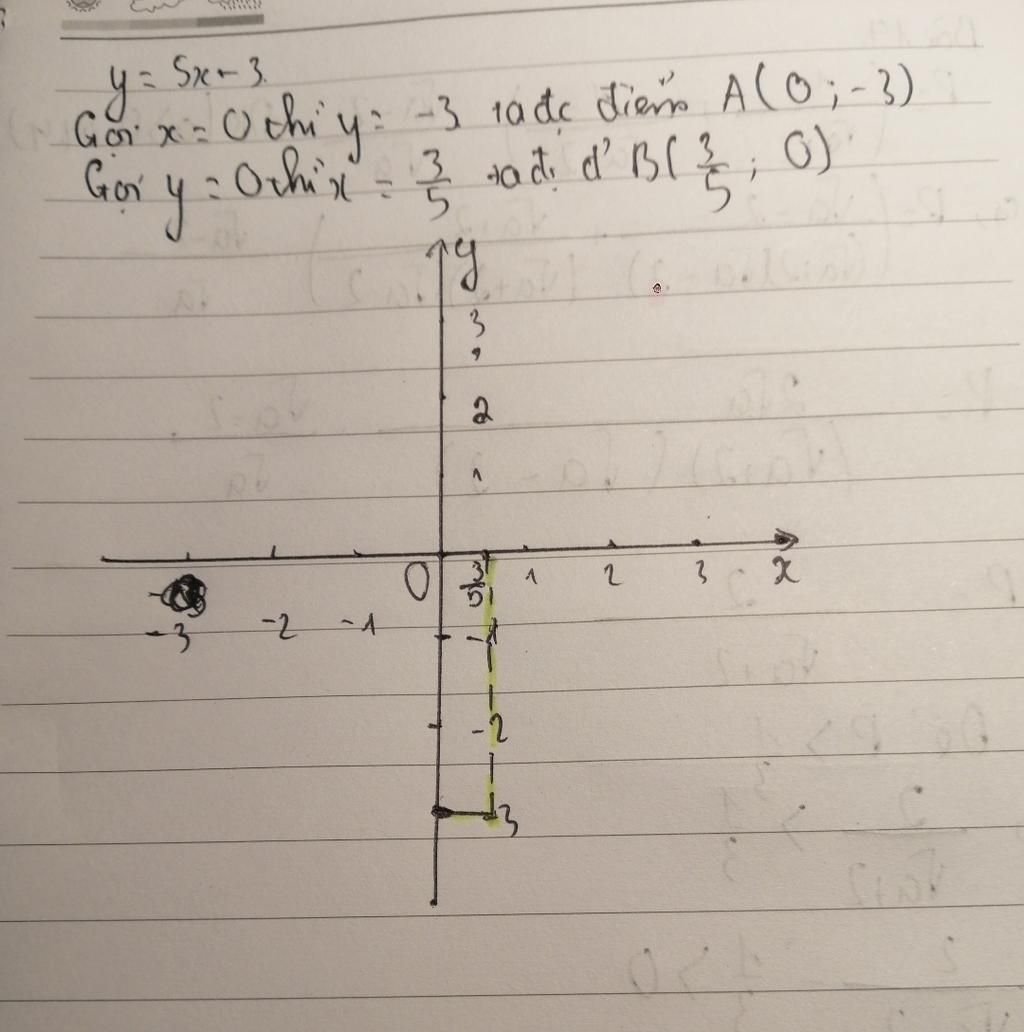 y = 5x - 3
Gọi x = 0 thì y = -3 ta đc điểm A(0 ; -3)
Gọi y = 0 thì x = 3/5 ta đ đ' B(3/5 ; 0)
y
3
2
1
O 3/5 1 2 3 x
-3 -2 -1 -1
-2
-3